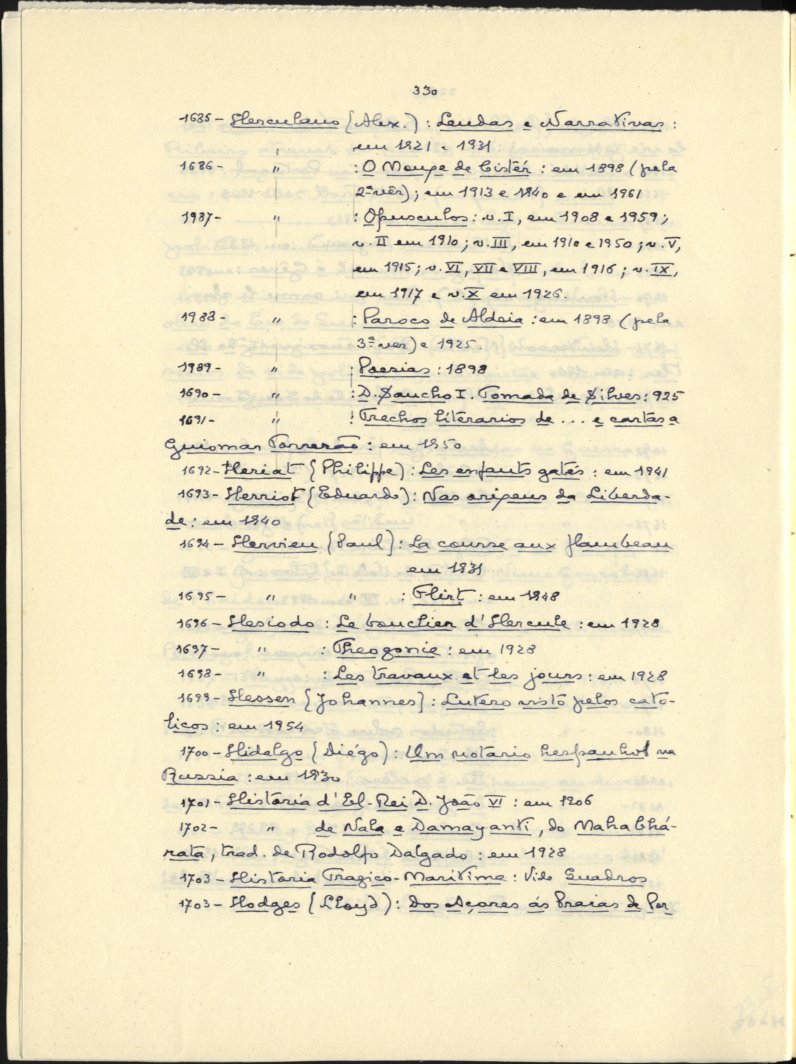 330
1685 - Herculano (Alex.) : Lendas e Narrativas :
em 1821 e 1931
1686 - " : O Monge de Cistér : em 1898 (pela
2ª vêr) ; em 1913 e 1840 e em 1961
1987 - " : Opusculos : v. I, em 1908 e 1959 ;
v. II em 1910 ; v. III, em 1910 e 1950 ; v. V,
em 1915 ; v. VI, VII e VIII, em 1916 ; v. IX,
em 1917 e v. X em 1926.
1988 - " : Paroco de Aldeia : em 1898 (pela
3ª ver) e 1925.
1989 - " : Poesias : 1898
1690 - " : D. Sancho I. Tomada de Silves : 925
1691 - " : Trechos literarios de ... e cartas a
Guiomar Torrezão : em 1950
1692 - Heriat (Philippe) : Les enfants gatés : em 1941
1693 - Herriot (Eduardo) : Nas origens da Liberda-
de : em 1840
1694 - Hervieu (Paul) : La course aux flambeau
em 1931
1695 - " " : Flirt : em 1848
1696 - Hesiodo : Le bouclier d'Hercule : em 1928
1697 - " : Theogonie : em 1928
1698 - " : Les travaux et les jours : em 1928
1699 - Hessen (Johannes) : Lutero visto pelos cato-
licos : em 1954
1700 - Hidalgo (Diégo) : Um notario hespanhol na
Russia : em 1930
1701 - Historia d'El-Rei D. João VI : em 1906
1702 - " de Nala e Damayanti, do Mahabhá-
rata, trad. de Rodolfo Dalgado : em 1928
1703 - Historia Tragico-Maritima : Vide Quadros
1703 - Hodges (Lloyd) : Dos Açores ás Praias de Por